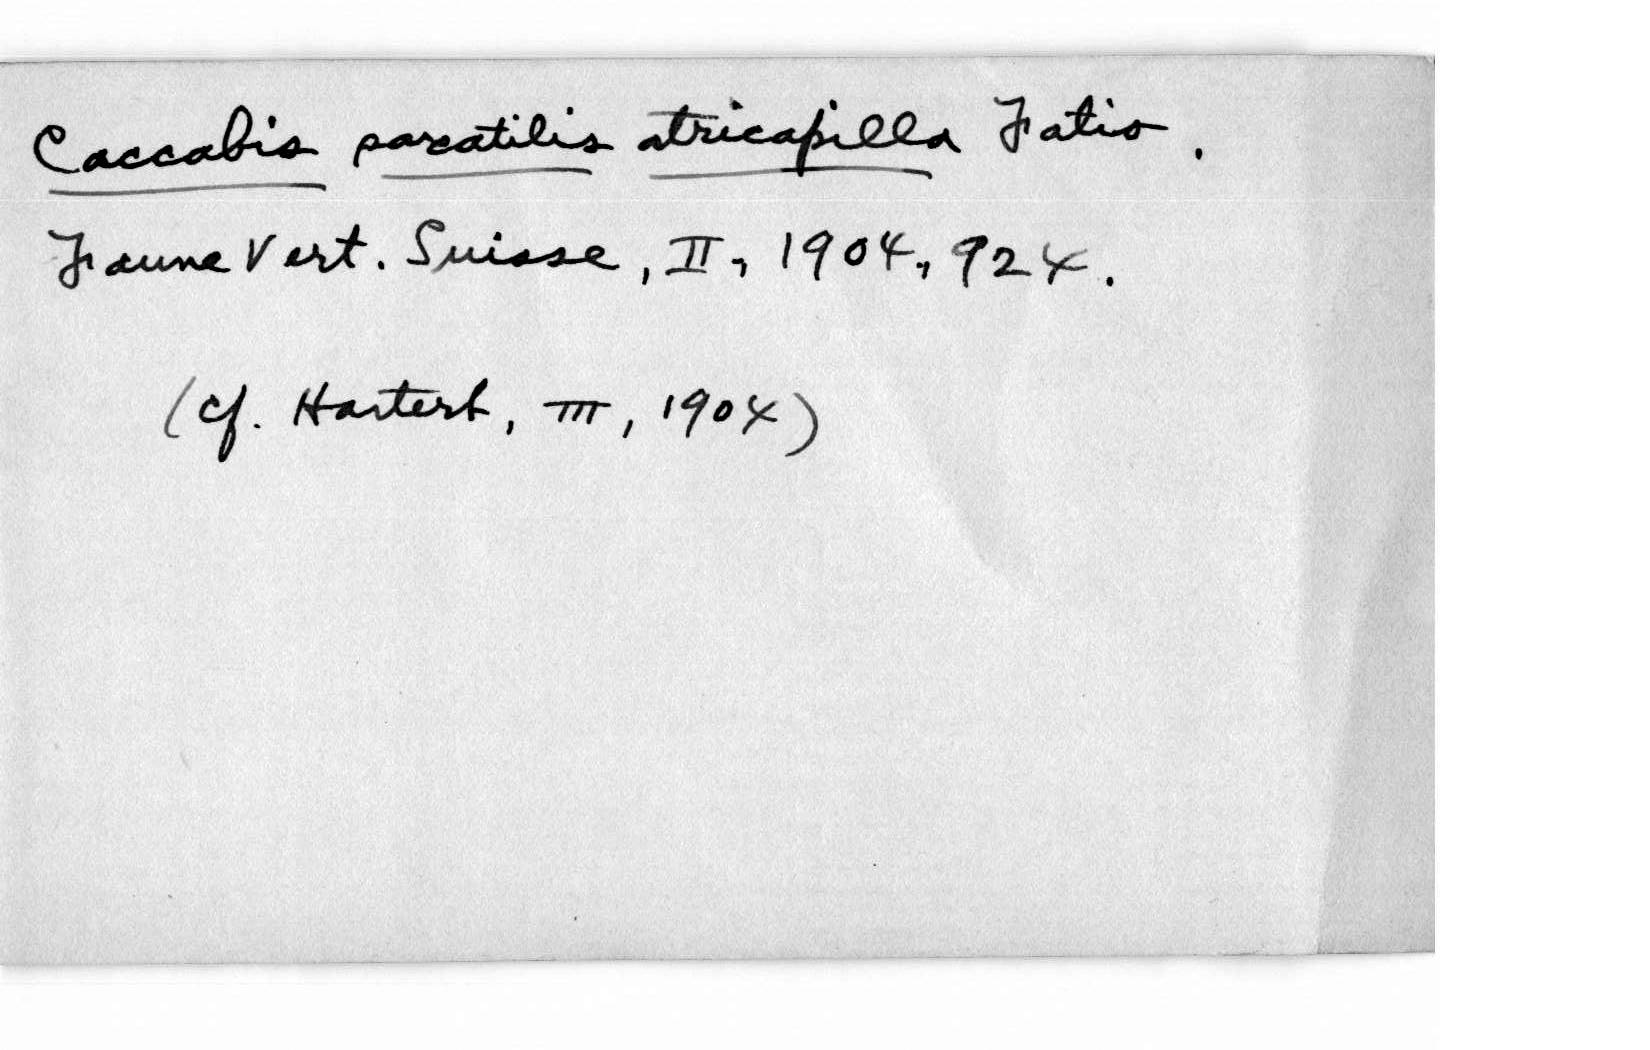 Caccabis saxatilis atricapilla Fatio.
Faune Vert. Suisse, II, 1904, 924.
(cf. Hartert, III, 1904)